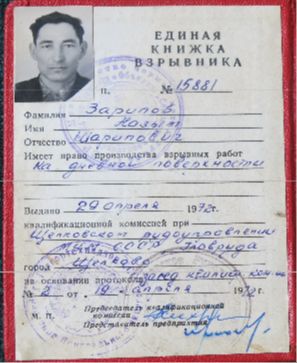 ЕДИНАЯ
КНИЖКА
ВЗРЫВНИКА
П. № 15881
Фамилия Зарипов
Имя Назып
Отчество Шарипович
Имеет право производства взрывных работ
На дневной поверхности
Выдано 29 апреля 1972 г.
квалификационной комиссией при
рудоуправлении
СССР
город
на основании протокола
№ 2 от 19 апреля 1972 г.
М. п. Председатель квалификационной
комиссии
Представитель предприятия